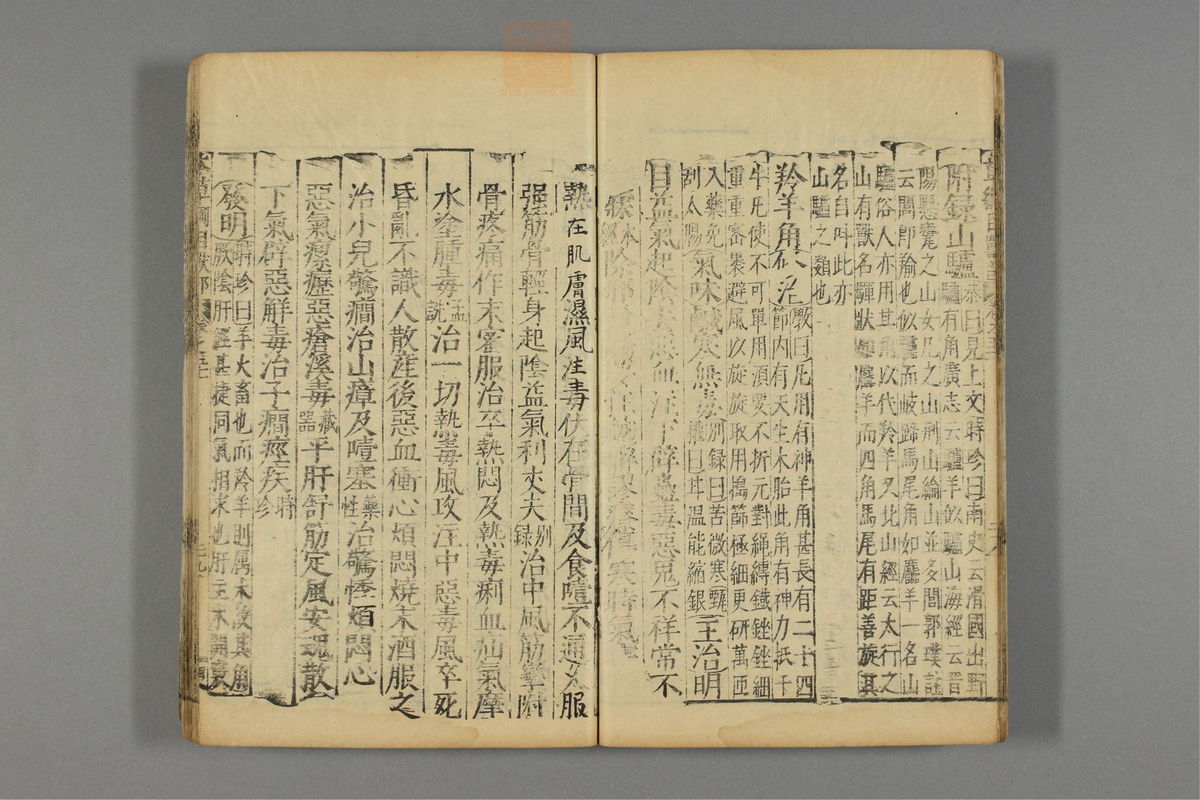 附錄山驢恭曰見上文時珍曰南史云滑國出野
驢有角廣志云驢羊似驢山海經云晉
陽懸甕之山女几之山荊山綸山並多閭郭璞註
云閭即羭也似驢而岐蹄馬尾角如麢羊一名山
驢俗人亦用其角以代羚羊又北山經云太行之
山有獸名驒狀如麢羊而四角馬尾有距善旋其
名自呌此亦
山驢之類也
羚羊角修治斆曰凡用有神羊角甚長有二十四
節內有天生木胎此角有神力抵千
牛凡使不可單用須要不折元對繩縛鐵銼銼細
重重密裹避風以旋旋取用搗篩極細更研萬匝
入藥免刮太陽氣味鹹寒無毒別錄曰苦微寒甄權曰甘溫能縮銀主治明
目益氣起陰去惡血注下辟蠱毒惡鬼不祥常不
寐本經除邪寒時氣
熱在肌膚濕風注毒伏在骨間及食噎不通久服
强筋骨輕身起陰益氣利丈夫別錄治中風筋攣附
骨疼痛作末蜜服治卒熱悶及熱毒痢血疝氣摩
水塗腫毒孟詵治一切熱毒風攻注中惡毒風卒死
昏亂不識人散產後惡血衝心煩悶燒末酒服之
治小兒驚癇治山瘴及噎塞藥性治驚悸煩悶心
惡氣瘰癧惡瘡溪毒藏器平肝舒筋定風安魂散血
下氣辟惡解毒治子癇痙疾時珍
發明時珍曰羊火畜也而羚羊則属木故其角
厥陰肝經甚捷同氣相求也肝主木開竅